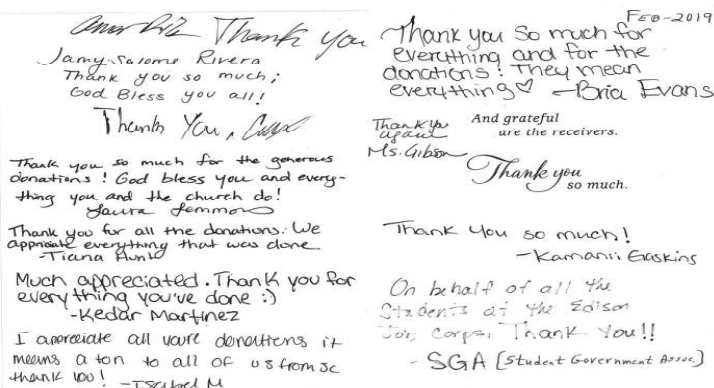 Thank you
Jamy Salome Rivera
Thank you so much;
God Bless you all!
Thanks You,
Thank you so much for the generous
donations! God bless you and every-
thing you and the church do!
Laura Lemmons
Thank you for all the donations. We
appreciate everything that was done.
-Tiana
Much appreciated. Thank you for
everything you've done :)
-Kedar Martinez
I appreciate all youre donations it
means a ton to all of us from JC
thank you! -Isabel M
FEB-2019
Thank you so much for
everything and for the
donations! They mean
everything♡ -Bria Evans
Thank you
again
Ms. Gibson
And grateful
are the receivers.
Thank you
so much.
Thank you so much!
-Kamarii Gaskins
On behalf of all the
Students at the Edison
Job Corps, Thank You!!
- SGA [Student Government Assoc.]